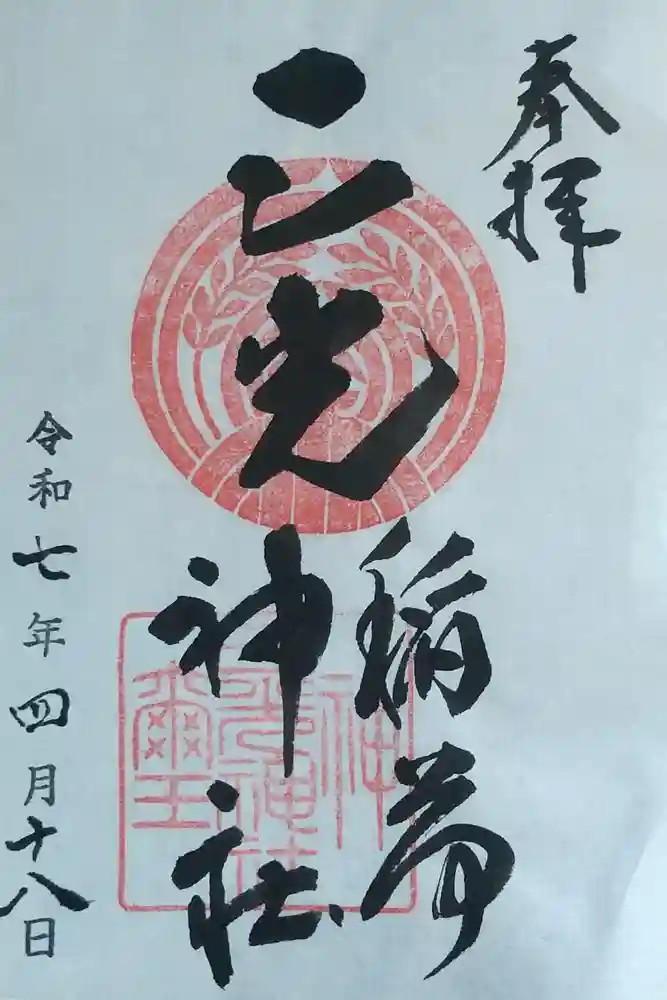 奉拝
三光
稲荷
神社
令和七年四月十八日